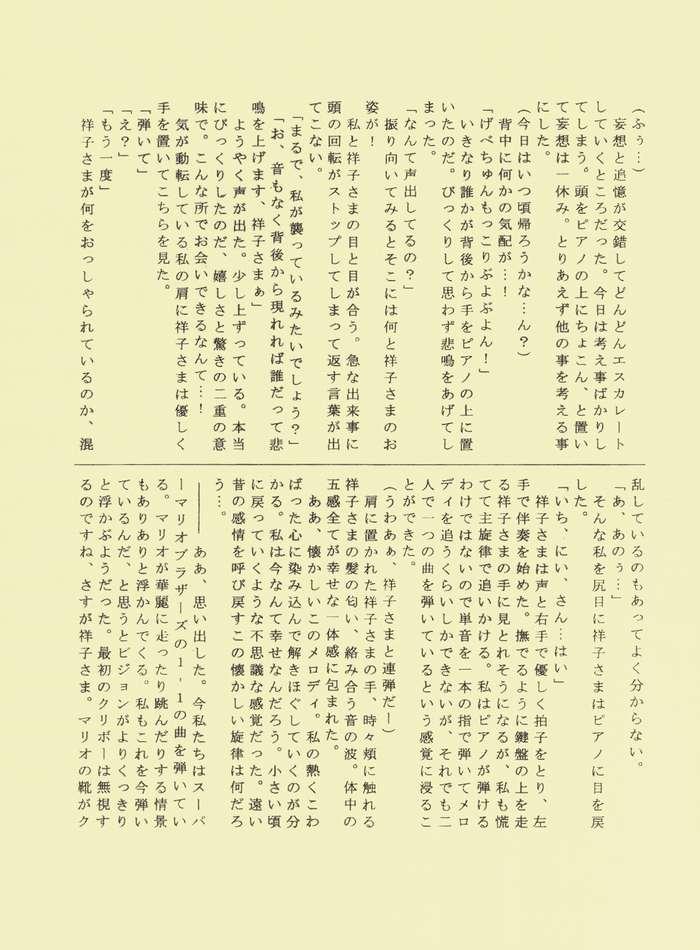 (ふぅ…)
　妄想と追憶が交錯してどんどんエスカレート
していくところだった。今日は考え事ばかりし
てしまう。頭をピアノの上にちょこん、と置い
て妄想は一休み。とりあえず他の事を考える事
にした。
(今日はいつ頃帰ろうかな…ん?)
　背中に何かの気配が…!
「げぺちゅんもっこりぷよぷよん!」
　いきなり誰かが背後から手をピアノの上に置
いたのだ。びっくりして思わず悲鳴をあげてし
まった。
「なんて声出してるの?」
　振り向いてみるとそこには何と祥子さまのお
姿が!
　私と祥子さまの目と目が合う。急な出来事に
頭の回転がストップしてしまって返す言葉が出
てこない。
「まるで、私が襲っているみたいでしょう?」
「お、音もなく背後から現れれば誰だって悲
鳴を上げます、祥子さまぁ」
　ようやく声が出た。少し上ずっている。本当
にびっくりしたのだ、嬉しさと驚きの二重の意
味で。こんな所でお会いできるなんて…!
　気が動転している私の肩に祥子さまは優しく
手を置いてこちらを見た。
「弾いて」
「え?」
「もう一度」
　祥子さまが何をおっしゃられているのか、混
乱しているのもあってよく分からない。
「あ、あのぅ…」
　そんな私を尻目に祥子さまはピアノに目を戻
した。
「いち、にい、さん…はい」
　祥子さまは声と右手で優しく拍子をとり、左
手で伴奏を始めた。撫でるように鍵盤の上を走
る祥子さまの手に見とれそうになるが、私も慌
てて主旋律で追いかける。私はピアノが弾ける
わけではないので単音を一本の指で弾いてメロ
ディを追うくらいしかできないが、それでも二
人で一つの曲を弾いているという感覚に浸るこ
とができた。
(うわあぁ、祥子さまと連弾だー)
　肩に置かれた祥子さまの手、時々頬に触れる
祥子さまの髪の匂い、絡み合う音の波。体中の
五感全てが幸せな一体感に包まれた。
　ああ、懐かしいこのメロディ。私の熱くこわ
ばった心に染み込んで解きほぐしていくのが分
かる。私は今なんて幸せなんだろう。小さい頃
に戻っていくような不思議な感覚だった。遠い
昔の感情を呼び戻すこの懐かしい旋律は何だろ
う…。
――― ああ、思い出した。今私たちはスーパ
ーマリオブラザーズの1-1の曲を弾いてい
る。マリオが華麗に走ったり跳んだりする情景
もありありと浮かんでくる。私もこれを今弾い
ているんだ、と思うとビジョンがよりくっきり
と浮かぶようだった。最初のクリボーは無視す
るのですね、さすが祥子さま。マリオの靴がク